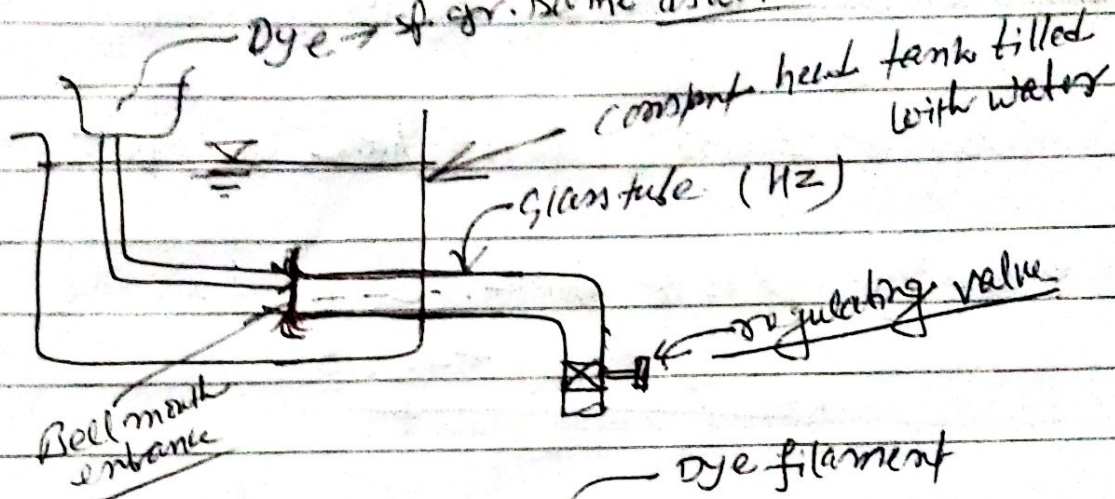 Dye → sp. gr. same as
constant head tank filled
with water
Glass tube (HZ)
regulating valve
Bell mouth
entrance
Dye filament